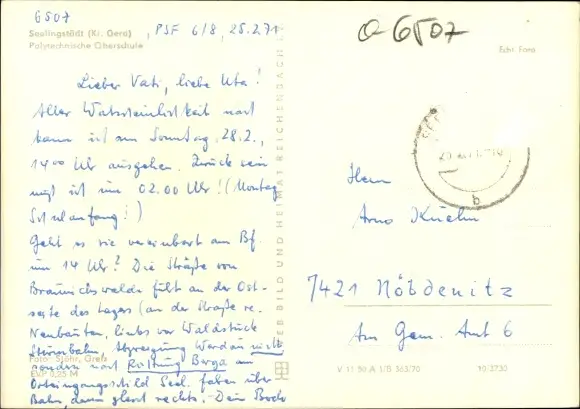 6507
Seelingstädt (Kr. Gera)
Polytechnische Oberschule
, PSF 6/8, 25.2.71
Lieber Vati, liebe Uta!
Aller Wahrscheinlichkeit nach
kann ich am Sonntag, 28.2.,
14⁰⁰ Uhr ausgehen. Zurück sein
muß ich um 02.00 Uhr! (Montag
Schulanfang!)
Geht es wie vereinbart am Bf.
um 14 Uhr? Die Straße von
Braunichswalde führt an der Ost-
seite des Lagers (an der Straße re.
Neubauten, links vor Waldstück
Abzweigung Werdau nicht
sondern nach Richtung Berga am
Ortseingangsschild Seel. fahren über
Bahn, dann gleich rechts. Dein
Foto: Stöhr, Greiz
EVP 0,25 M
VEB BILD UND HEIMAT REICHENBACH
6507
Echt Foto
b
Herrn
Arno Kuehn
7421 Nöbdenitz
Am Gem. Amt 6
V 11 50 A 1/B 563/70
10/3733